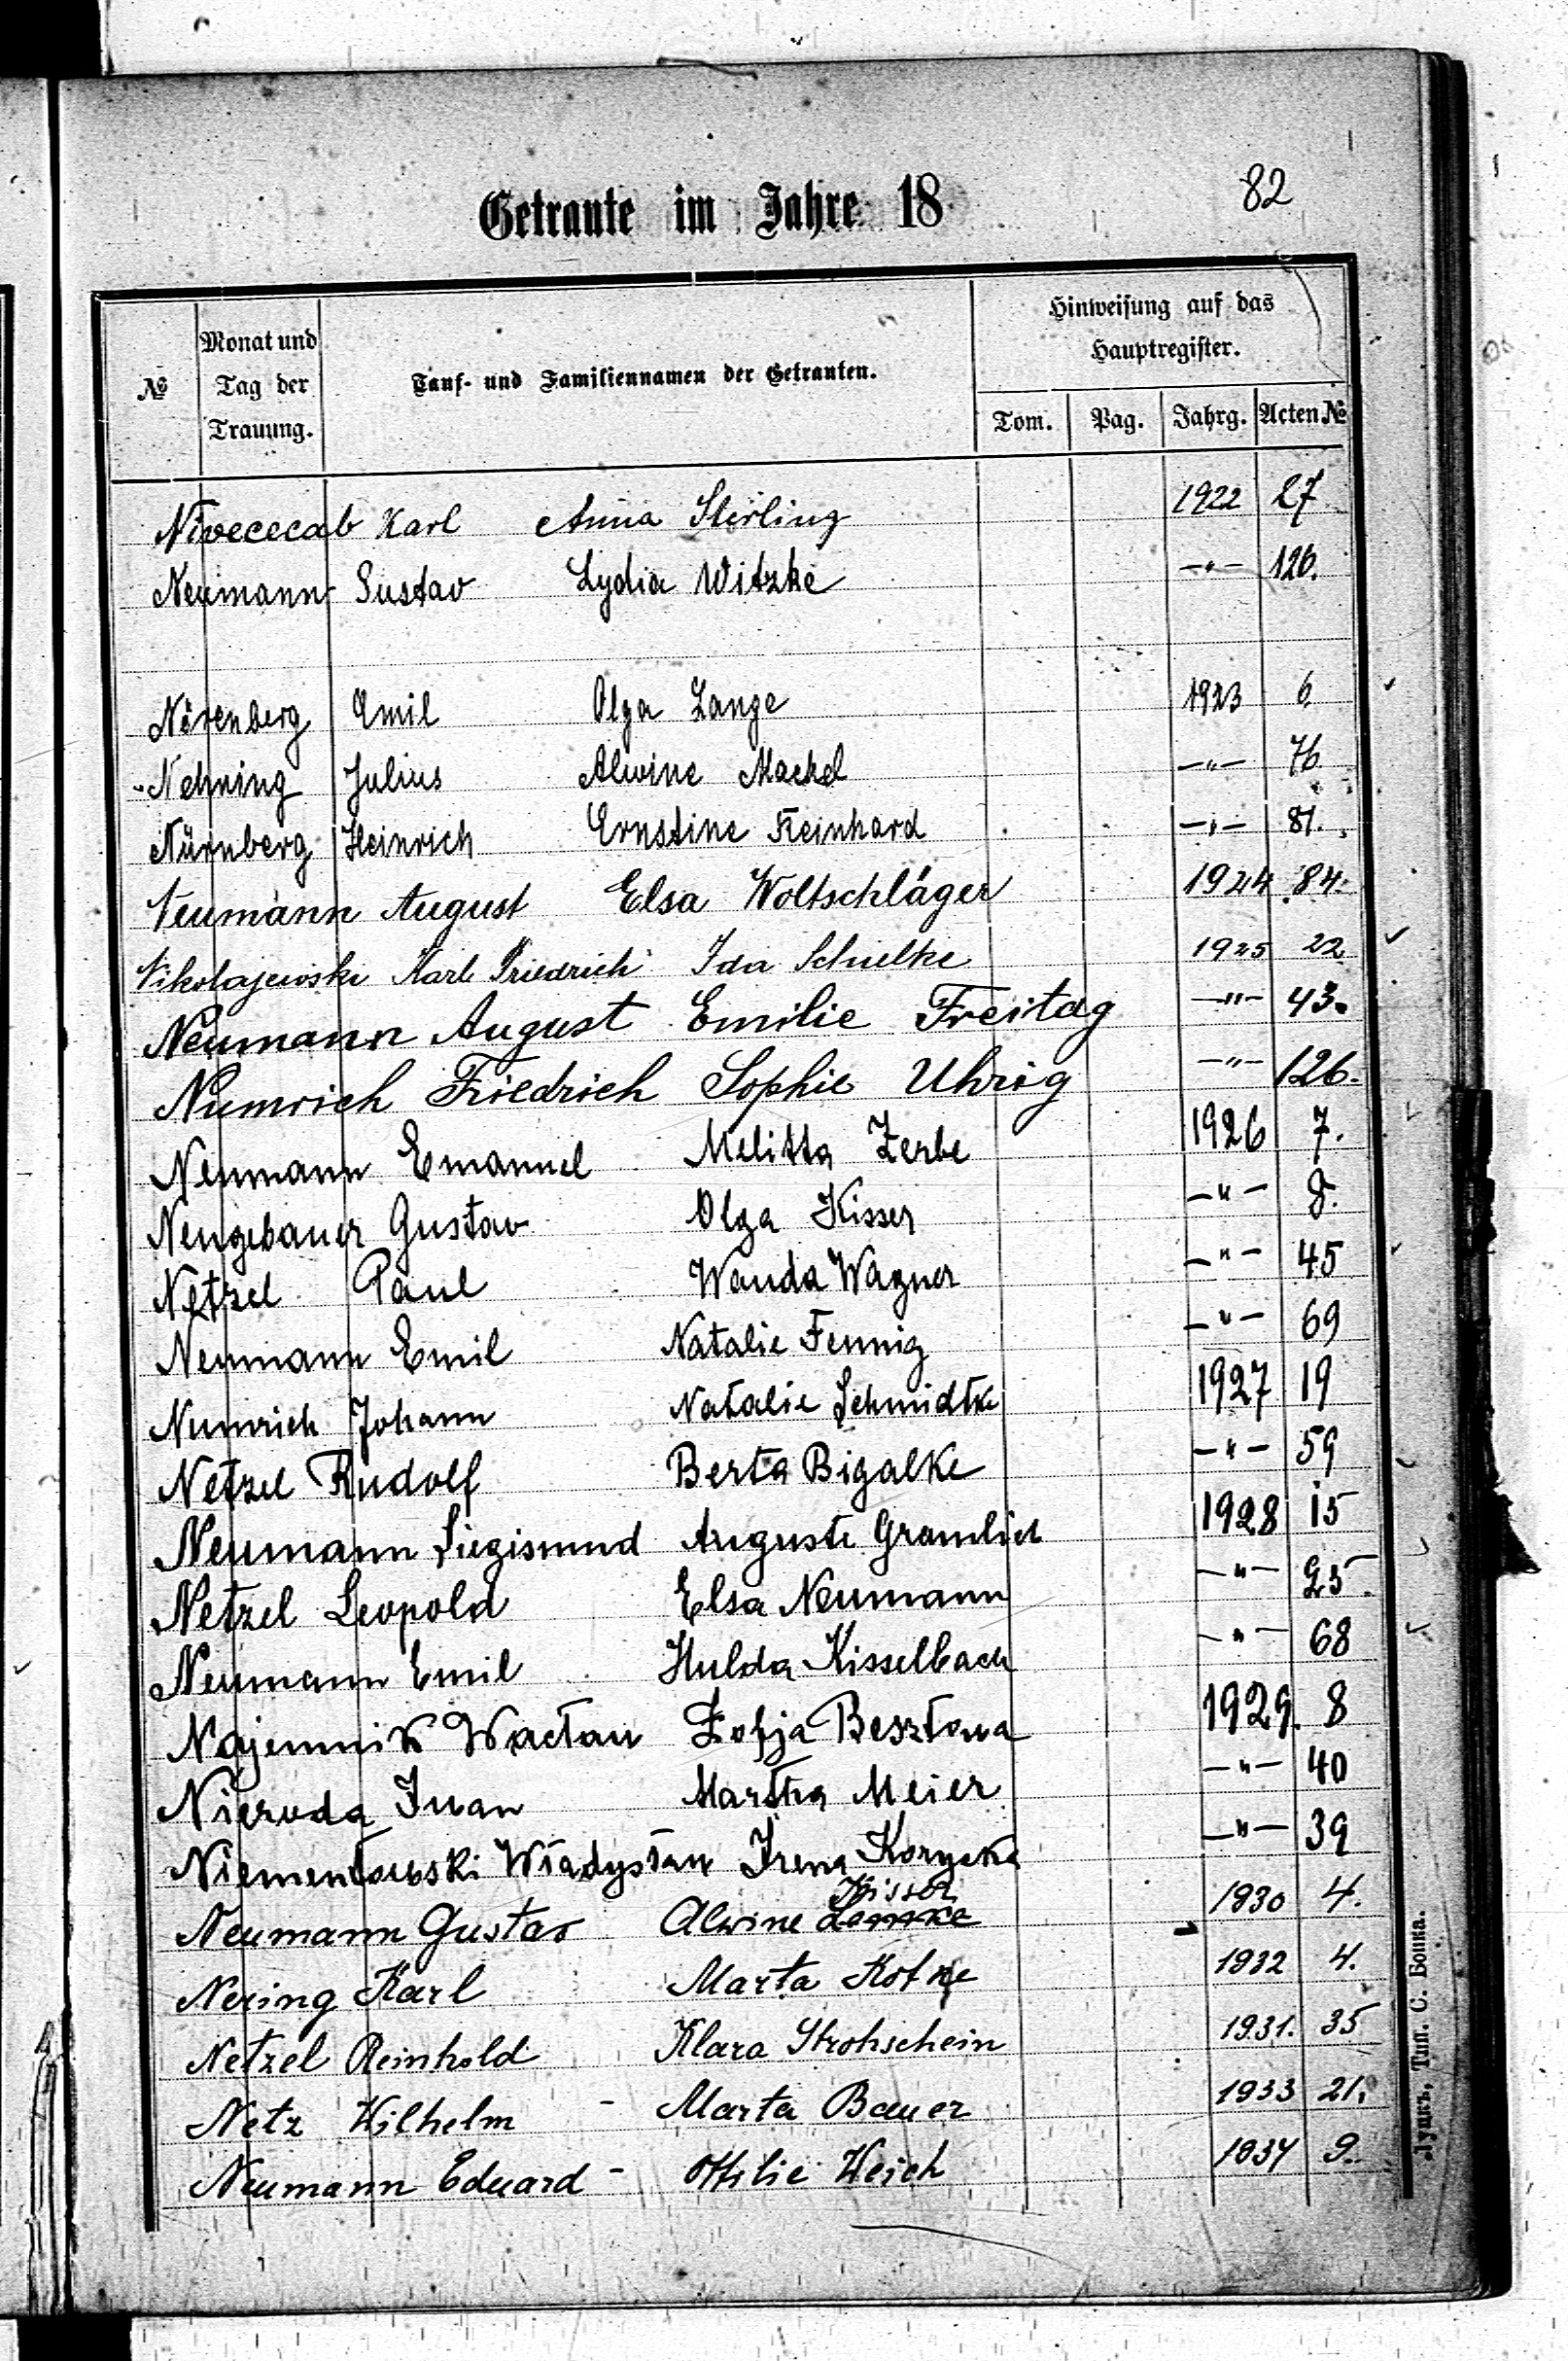 82
Getraute im Jahre 18
№ Monat und Tag der Trauung. Tauf- und Familiennamen der Getrauten. Hinweisung auf das Hauptregister.
Tom. Pag. Jahrg. Acten №
Karl Anna Sterling 1922 27
Neumann Gustav Lydia Witzke -„- 126.
Nörenberg Emil Olga Lange 1923 6
Nehring Julius Alwine Mackel -„- 76
Nürnberg Heinrich Ernstine Reinhard -„- 81.
Neumann August Elsa Woltschläger 1924 84.
Nikolajewski Karl Friedrich Ida Schielke 1925 22
Neumann August Emilie Freitag -„- 43.
Numrich Friedrich Sophie Uhrig -„- 126.
Neumann Emanuel Melitta Zerbe 1926 7.
Neugebauer Gustav Olga Kisser -„- 8.
Netzel Paul Wanda Wagner -„- 45
Neumann Emil Natalie Fennig -„- 69
Numrich Johann Natalie Schmidtke 1927 19
Netzel Rudolf Berta Bigalke -„- 59
Neumann Siegismund Auguste Gramlich 1928 15
Netzel Leopold Elsa Neumann -„- 25
Neumann Emil Hulda Kisselbach -„- 68
Najemnik Wacław Zofja 1929. 8
Nieroda Iwan Martha Meier -„- 40
Niementowski Władysław Irena Korycka -„- 39
Kisser
Neumann Gustav Alwine Lemke 1930 4.
Nering Karl Marta Kotke 1932 4.
Netzel Reinhold Klara Strohschein 1931. 35
Netz Wilhelm - Marta Bauer 1933 21.
Neumann Eduard - Ottilie Weich 1934 9.
Луцкъ, Тип. С. Бонка.